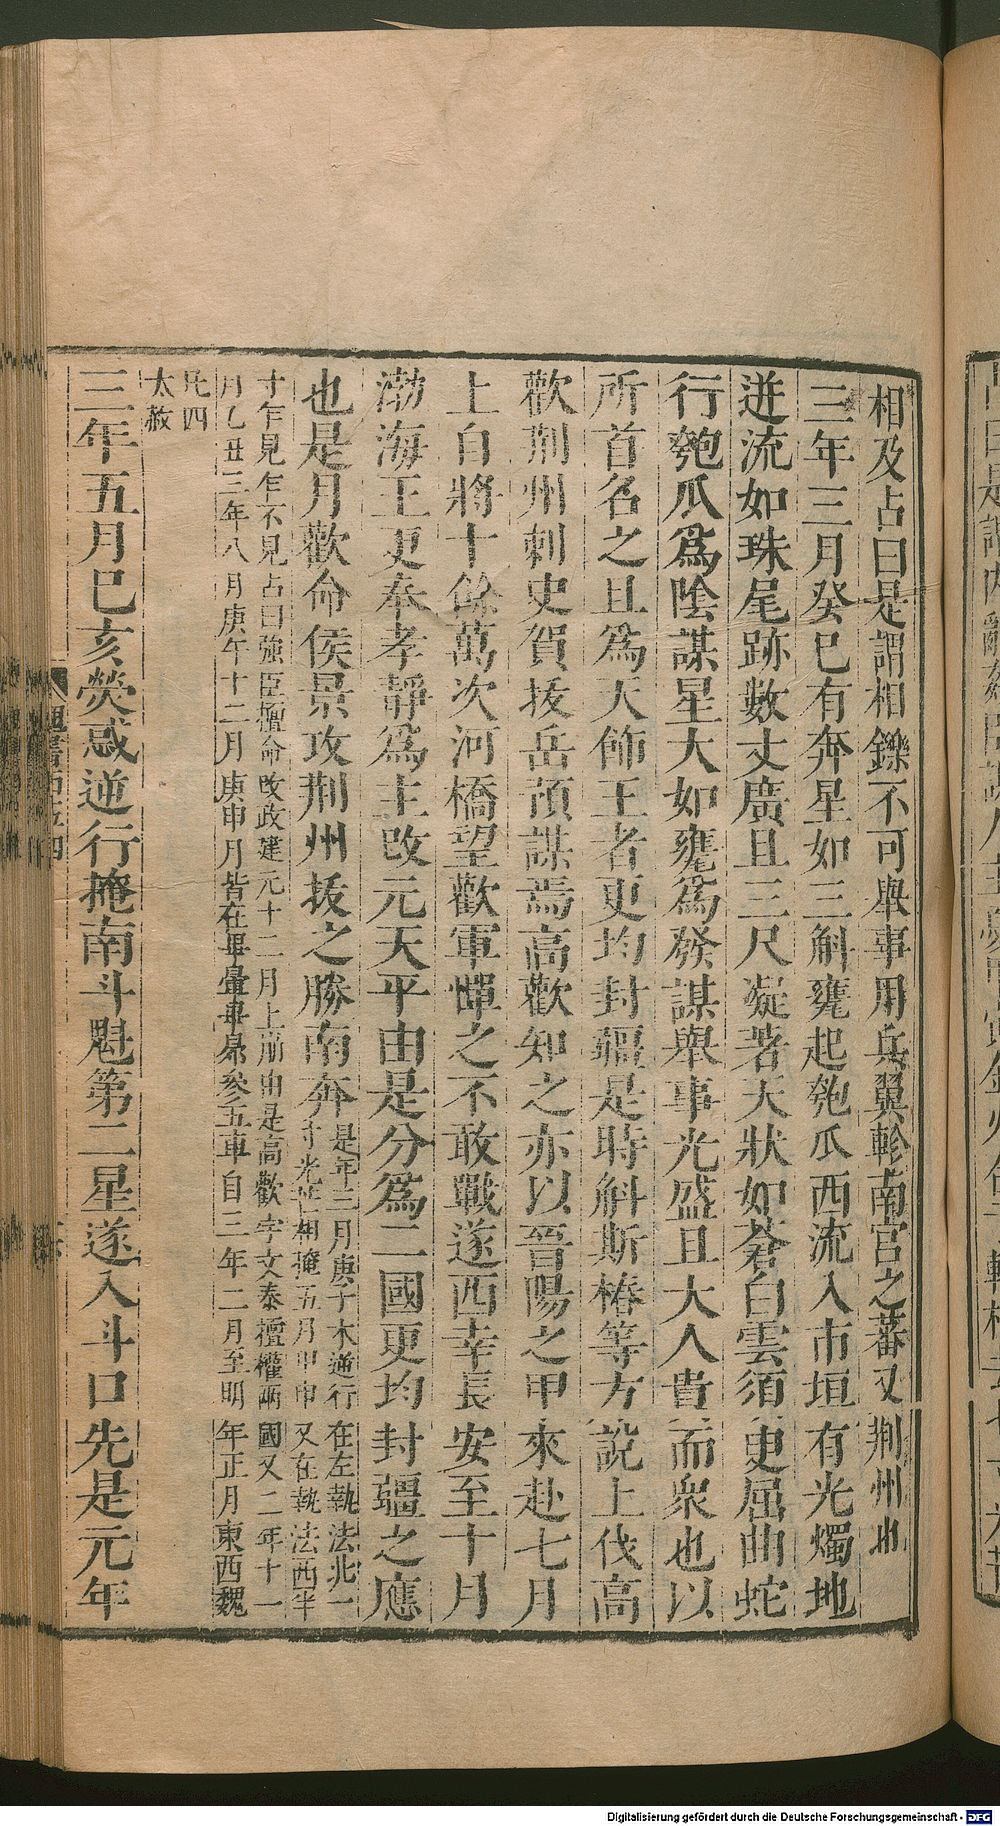 相及占曰是謂相鑠不可舉事用兵翼軫南宮之蕃又荆州也
三年三月癸巳有奔星如三斛甕起匏瓜西流入市垣有光燭地
迸流如珠尾跡數丈廣且三尺凝著天狀如蒼白雲須臾屈曲蛇
行匏瓜爲陰謀星大如甕爲發謀舉事光盛且大人貴而衆也以
所首名之且爲天飾王者更均封疆是時斛斯椿等方說上伐高
歡荆州刺史賀拔岳預謀焉高歡知之亦以晉陽之甲來赴七月
上自將十餘萬次河橋望歡軍憚之不敢戰遂西幸長安至十月
渤海王更奉孝靜爲主改元天平由是分爲二國更均封疆之應
也是月歡命侯景攻荆州拔之勝南奔
是年三月庚子木逆行在左執法北一
寸光芒相掩五月甲申又在執法西半
寸乍見乍不見占曰強臣擅命改政建元十二月上崩由是高歡宇文泰擅權兩國又二年十一
月乙丑三年八月庚午十二月庚申月皆在畢暈畢昴參五車自三年二月至明年正月東西魏
凡四
太赦
三年五月己亥熒惑逆行掩南斗魁第二星遂入斗口先是元年
Digitalisierung gefördert durch die Deutsche Forschungsgemeinschaft - DFG